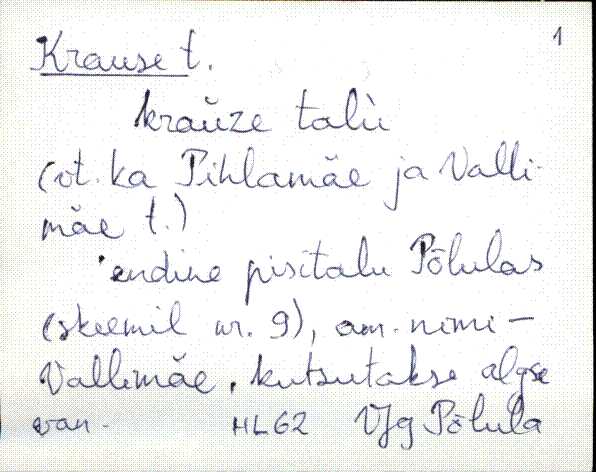 1
Krause t.
krauze talu
(vt. ka Pihlamäe ja Valli-
mäe t.)
endine pisitalu Põlulas
(skeemil nr. 9), am. nimi -
Vallimäe, kutsutakse algse
van.
HL62 VJg Põlula